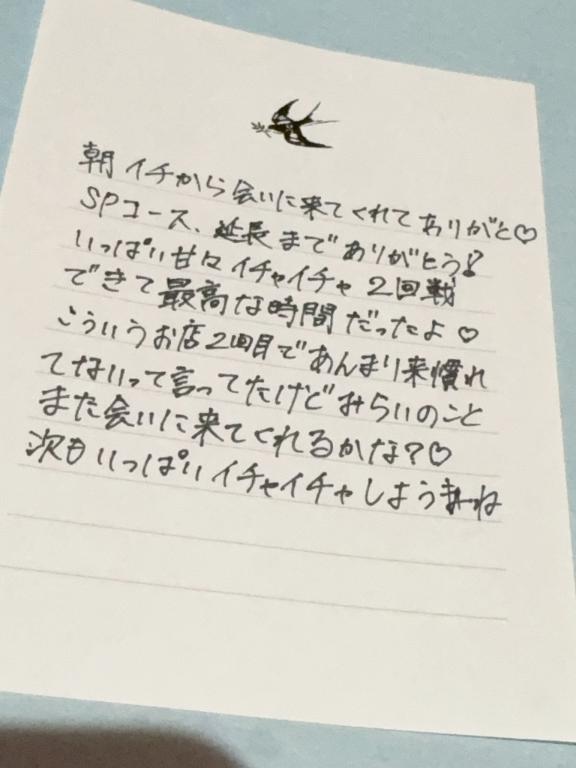 朝イチから会いに来てくれてありがと♡
SPコース、延長までありがとう!
いっぱい甘々イチャイチャ2回戦
できて最高な時間だったよ♡
こういうお店2回目であんまり来慣れ
てないって言ってたけどみらいのこと
また会いに来てくれるかな?♡
次もいっぱいイチャイチャしようね